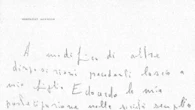 A modifica di altre
disposizioni pendenti lascio a
mio figlio Edoardo la mia
partecipazione nella società semplice